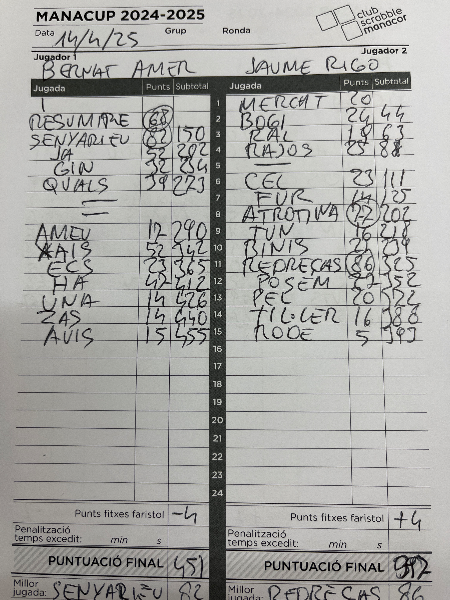 MANACUP 2024-2025
club scrabble manacor
Data 14/4/25 Grup Ronda
Jugador 1 Jugador 2
BERNAT AMER JAUME RIGO
Jugada Punts Subtotal Jugada Punts Subtotal
1 MERCAT 20
RESUMARE 68 2 BOGI 24 44
SENYARIEU 82 150 3 RAL 19 63
JA 52 202 4 RAJOS 25 88
GIN 32 234 5
QUALS 39 273 6 CEL 23 111
7 FUR 14 125
8 ATROTINA 77 202
AMEU 17 290 9 TUN 16 218
XAIS 52 342 10 BINIS 21 239
ECS 23 365 11 REDREÇAS 86 325
HA 47 412 12 POSEM 27 352
UNA 14 426 13 PEL 20 372
ZAS 14 440 14 TIL·LER 16 388
AVIS 15 455 15 RODE 5 393
16
17
18
19
20
21
22
23
24
Punts fitxes faristol -4 Punts fitxes faristol +4
Penalització temps excedit: min s Penalització temps excedit: min s
PUNTUACIÓ FINAL 451 PUNTUACIÓ FINAL
Millor jugada: SENYARIEU 82 Millor jugada: REDREÇAS 86